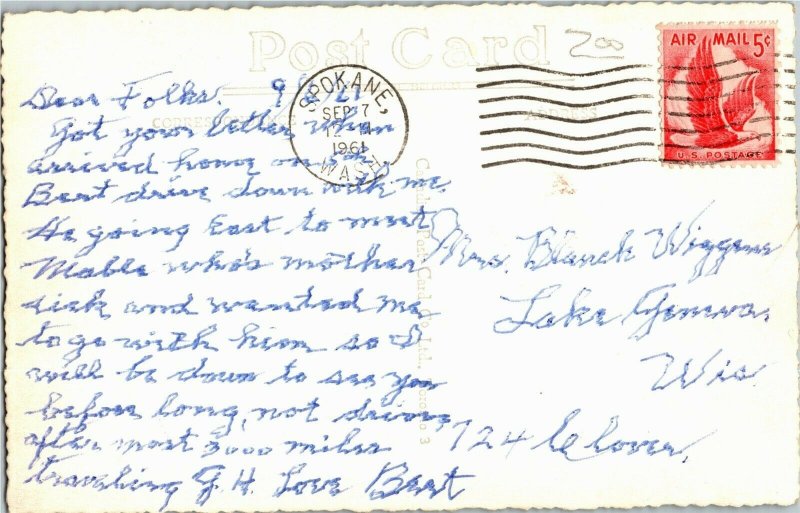 Post Card
200
AIR MAIL 5¢
U.S. POSTAGE
SPOKANE,
SEP 7
1961
WASH.
CORRESPONDENCE
ADDRESS
Dear Folks. 9/
Got your letter when
arrived home on
Bert drive down with me.
He going East to meet
Mable who's mother
sick and wanted me
to go with him so I
will be down to see you
before long, not driving
after most 3000 miles
traveling G.H. Love Bert
Mrs. Blanch Wiggens
Lake Geneva,
Wis
724 Clover,